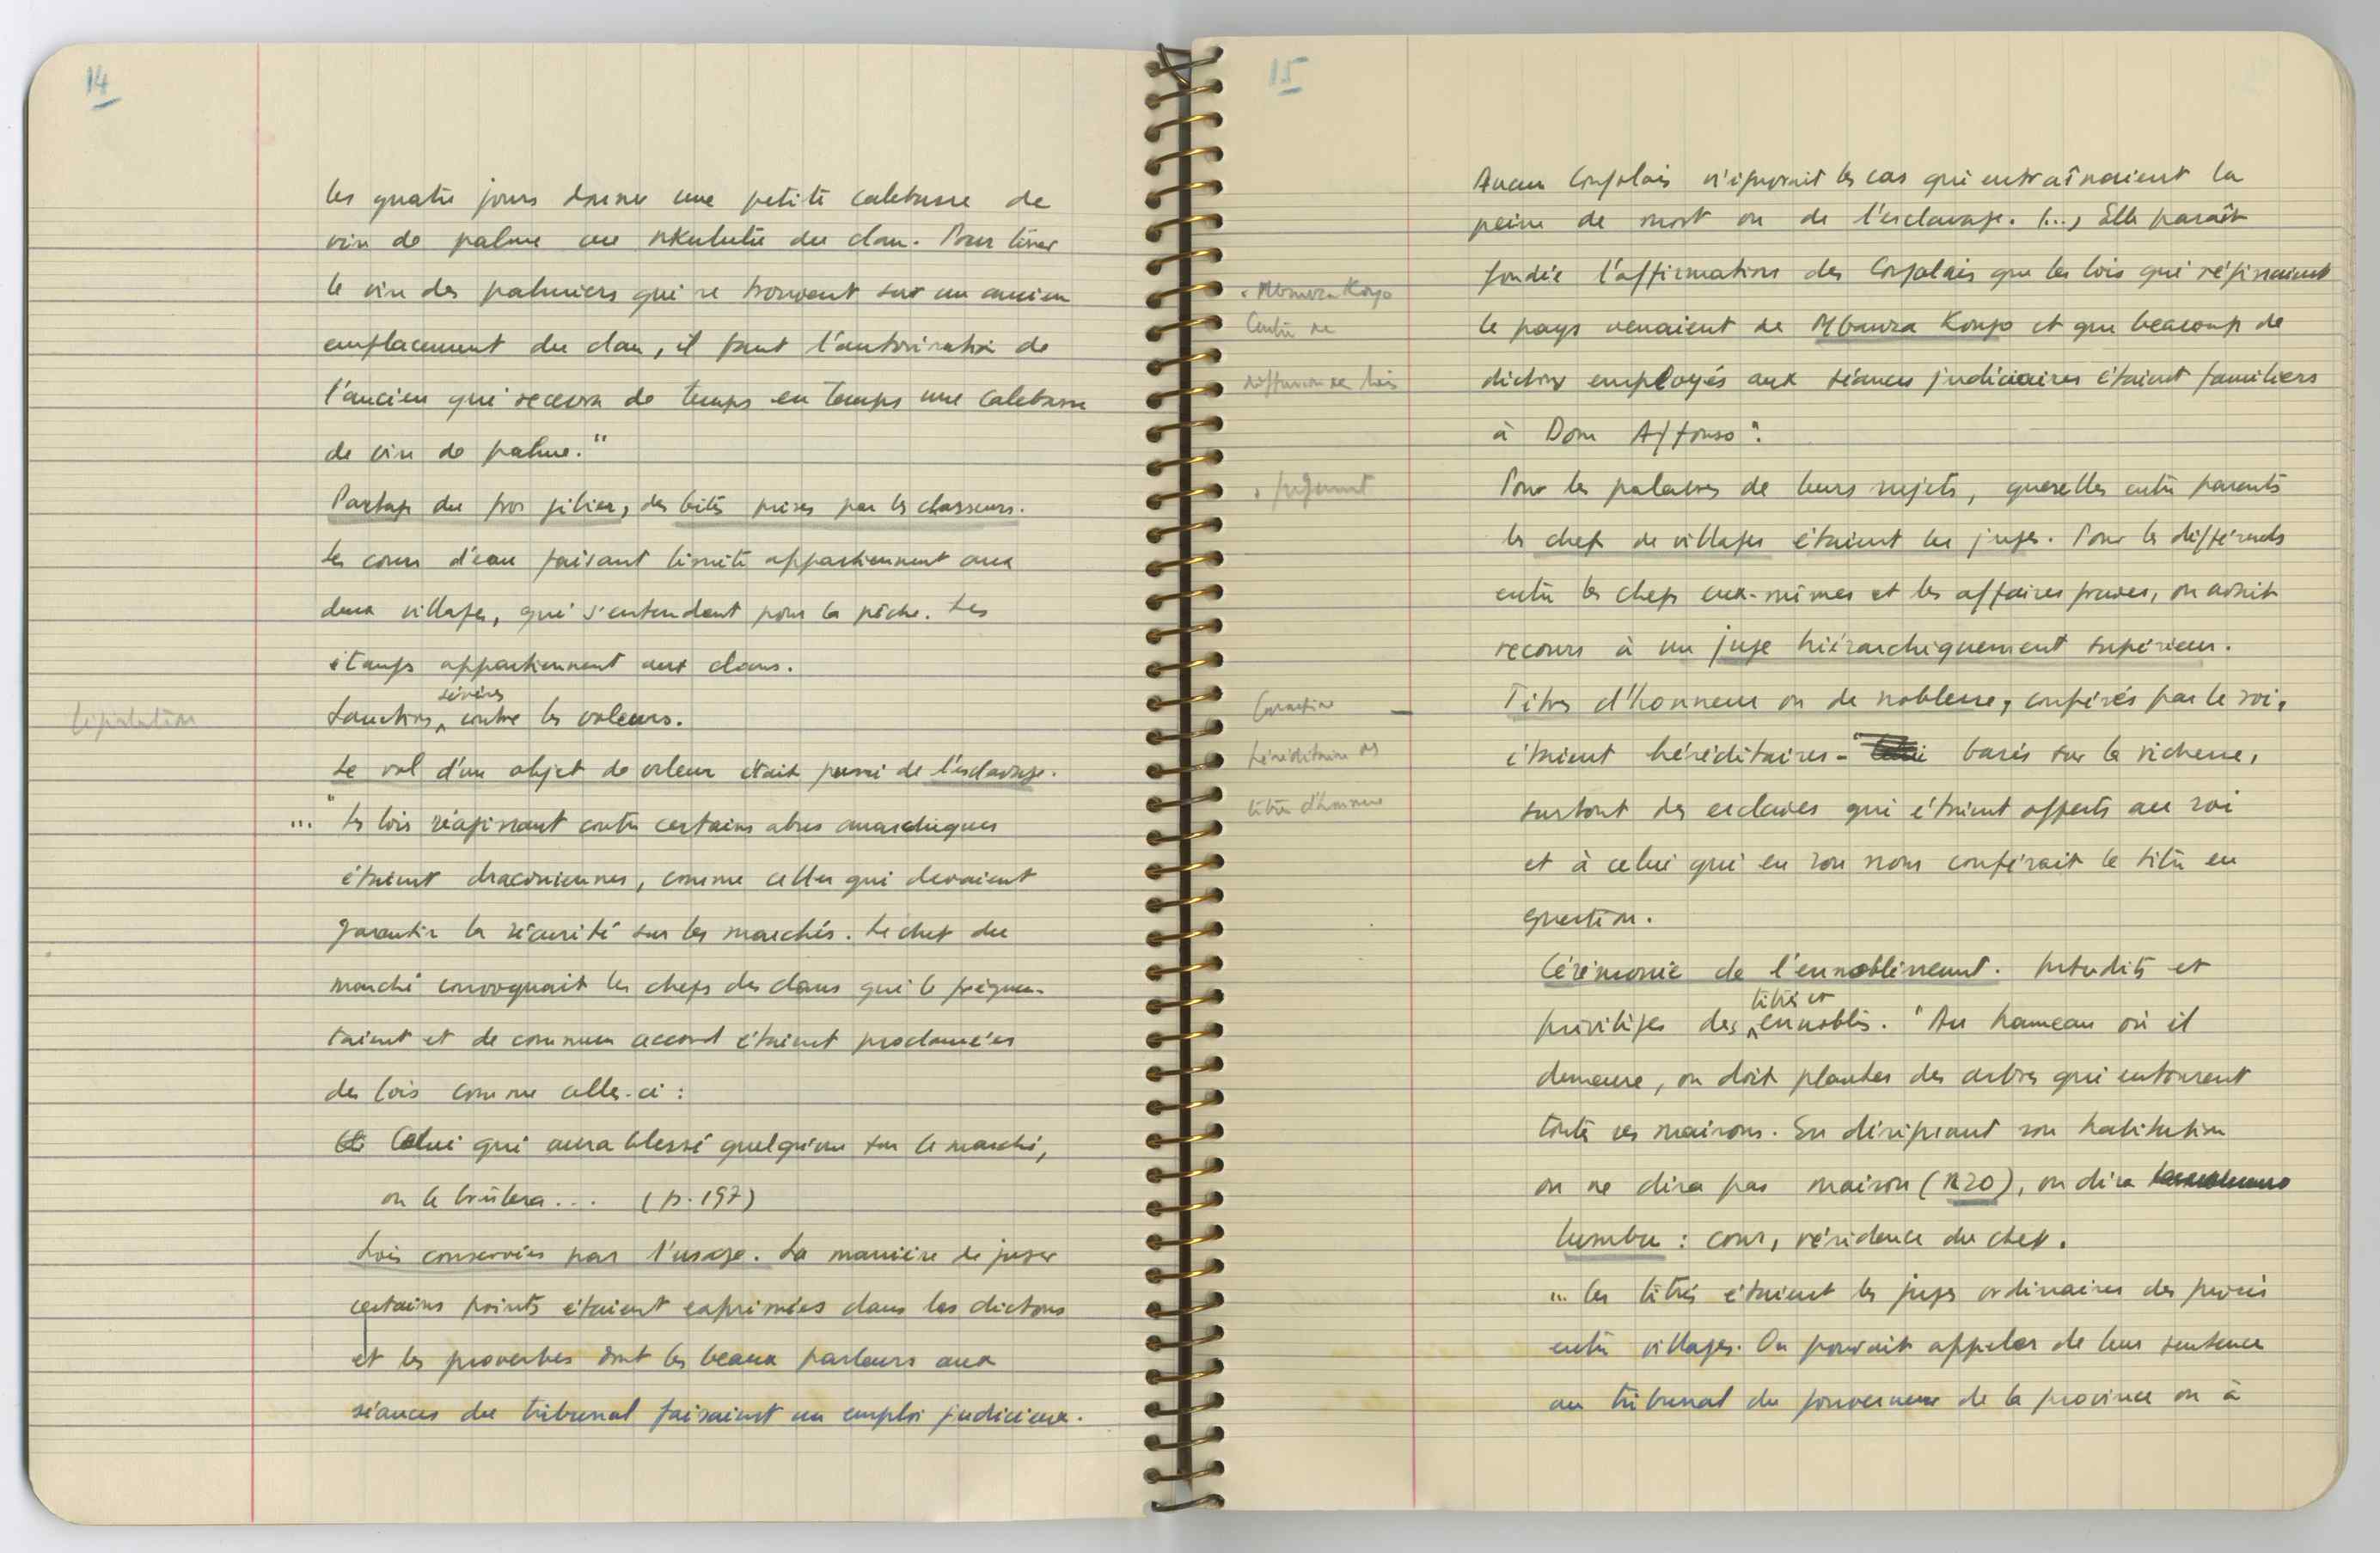 14
les quatre jours donner une petite calebasse de
vin de palme au nkulutu du clan. Pour tirer
le vin des palmiers qui se trouvent sur un ancien
emplacement du clan, il faut l'autorisation de
l'ancien qui recevra de temps en temps une calebasse
de vin de palme."
Partage du gros gibier, des bêtes prises par les chasseurs.
Les cours d'eau faisant limite appartiennent aux
deux villages, qui s'entendent pour la pêche. Les
étangs appartiennent aux clans.
sévères
Sanctions contre les voleurs.
Législation
Le vol d'un objet de valeur était puni de l'esclavage.
... "Les lois réagissant contre certains abus anarchiques
étaient draconiennes, comme celles qui devaient
garantir la sécurité sur les marchés. Le chef du
marché convoquait les chefs des clans qui le fréquen-
taient et de commun accord étaient proclamées
des lois comme celles-ci :
Celui qui aura blessé quelqu'un sur le marché,
on le brûlera... (p. 197)
Lois conservées par l'usage. La manière de juger
certains points étaient exprimées dans les dictons
et les proverbes dont les beaux parleurs aux
séances du tribunal faisaient un emploi judicieux.
15
Aucun Congolais n'ignorait les cas qui entraînaient la
peine de mort ou de l'esclavage. (...) Elle paraît
fondée l'affirmation des Congolais que les lois qui régissaient
le pays venaient de Mbanza Kongo et que beacoup de
dictons employés aux séances judiciaires étaient familiers
à Dom Affonso".
. Mbanza Kongo
Centre de
diffusion de lois
Pour les palabres de leurs sujets, querelles entre parents
. jugement
les chefs de villages étaient les juges. Pour les différends
entre les chefs eux-mêmes et les affaires graves, on avait
recours à un juge hiérarchiquement supérieur.
Titres d'honneur ou de noblesse, conférés par le roi,
étaient héréditaires - basés sur la richesse,
surtout des esclaves qui étaient offerts au roi
et à celui qui en son nom conférait le titre en
question.
Caractère —
héréditaire des
titres d'honneur
Cérémonie de l'ennoblissement. Interdits et
titrés et
privilèges des ennoblis. "Au hameau où il
demeure, on doit planter des arbres qui entourent
toute ses maisons. En désignant son habitation
on ne dira pas maison (nzo), on dira
lumbu : cour, résidence du chef.
... les titrés étaient les juges ordinaires des procès
entre villages. On pouvait appeler de leur sentence
au tribunal du gouverneur de la province ou à